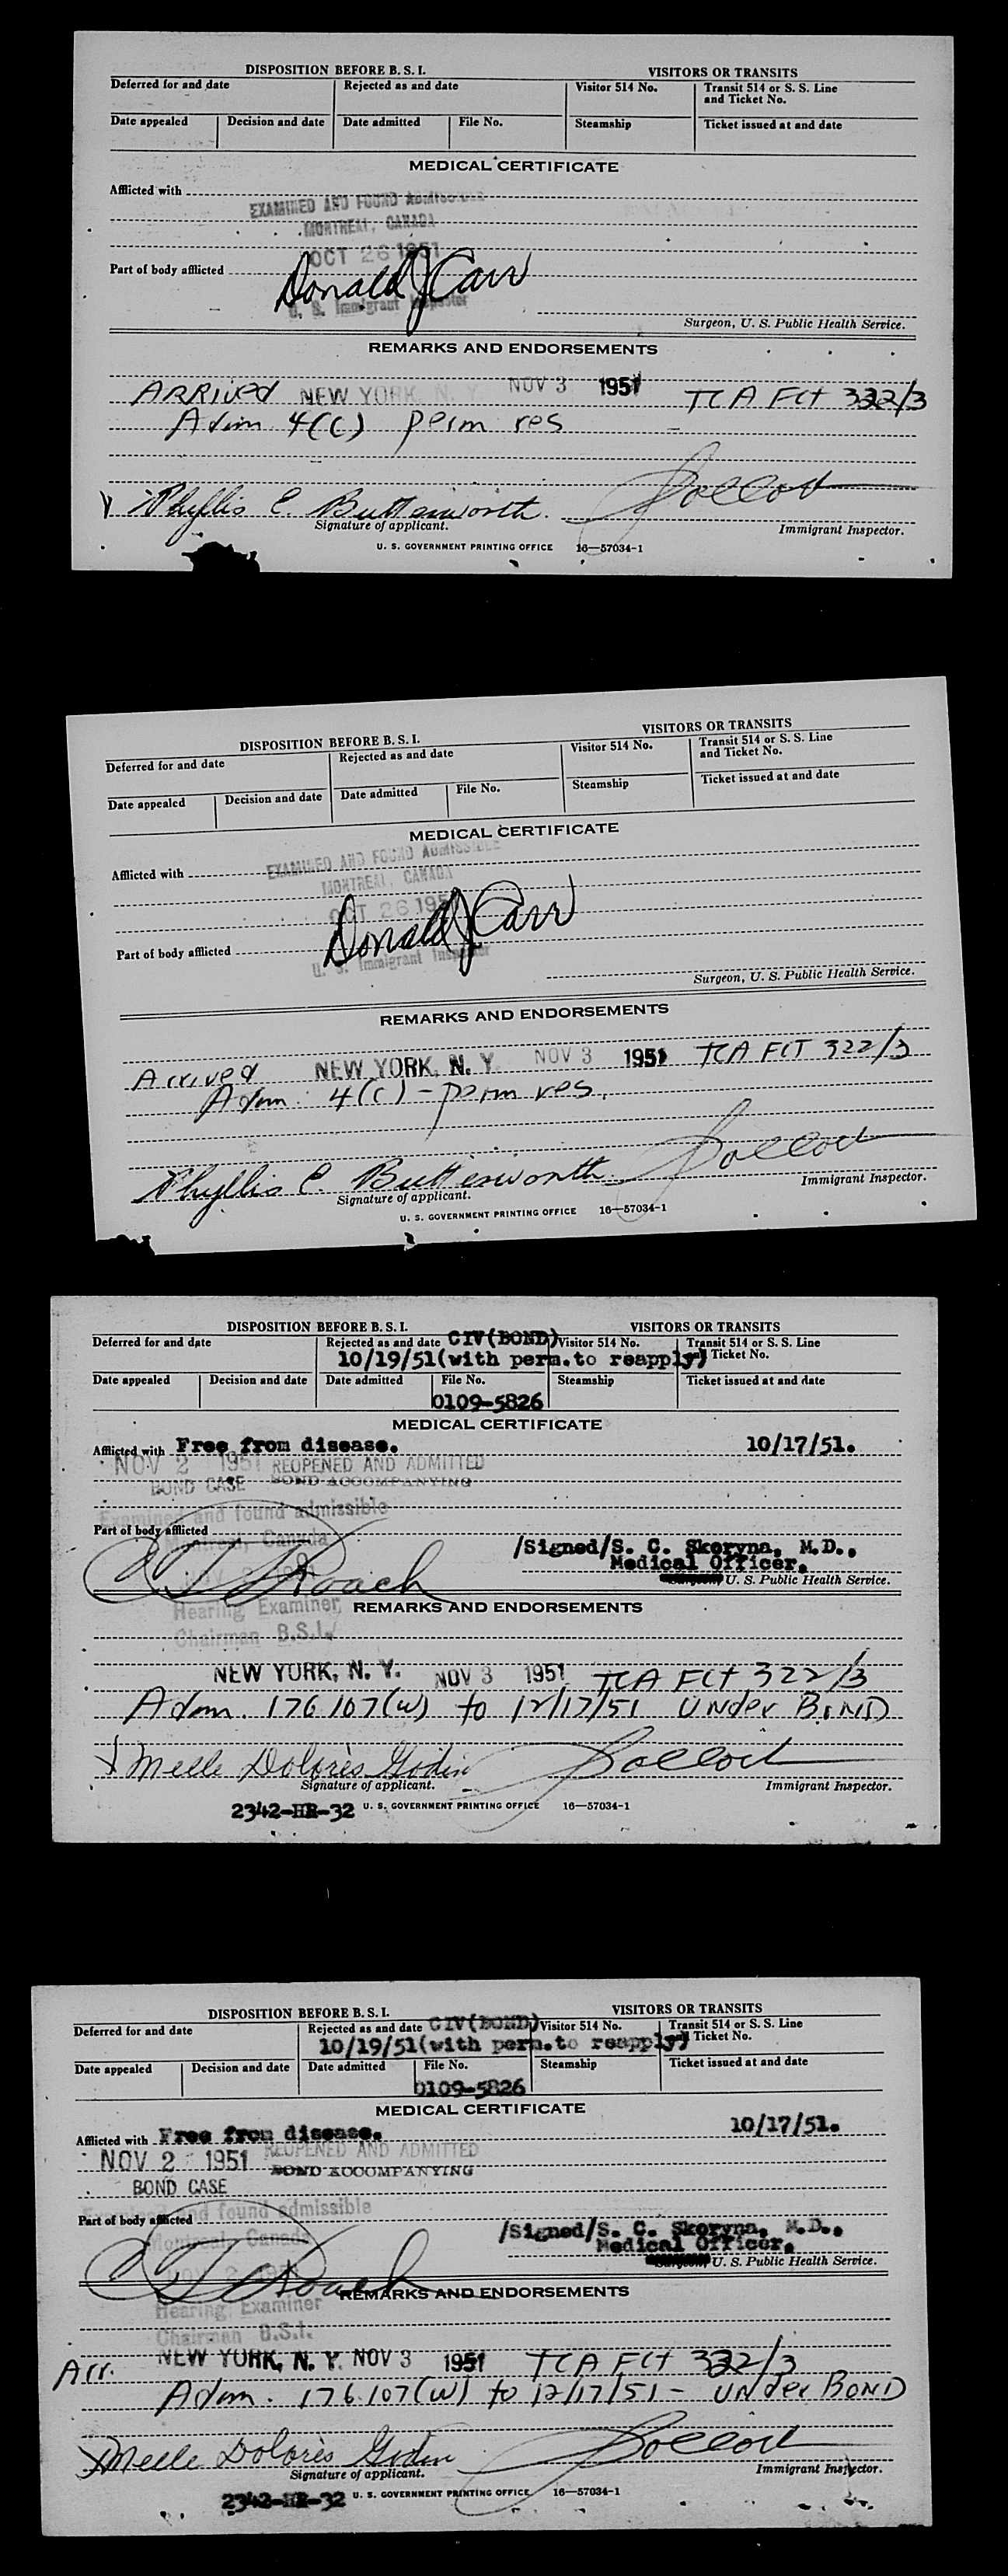 DISPOSITION BEFORE B. S. I. VISITORS OR TRANSITS
Deferred for and date Rejected as and date Visitor 514 No. Transit 514 or S. S. Line and Ticket No.
Date appealed Decision and date Date admitted File No. Steamship Ticket issued at and date
MEDICAL CERTIFICATE
Afflicted with
EXAMINED AND FOUND ADMISSIBLE
MONTREAL, CANADA
OCT 26 1951
Part of body afflicted
Donald J Carr
U. S. Immigrant Inspector
Surgeon, U. S. Public Health Service.
REMARKS AND ENDORSEMENTS
ARRived NEW YORK, N. Y. NOV 3 1951 TCA FLT 322/3
Adm 4(C) perm res
Phyllis C. Butterworth
Signature of applicant. Immigrant Inspector.
U. S. GOVERNMENT PRINTING OFFICE 16—57034-1
DISPOSITION BEFORE B. S. I. VISITORS OR TRANSITS
Deferred for and date Rejected as and date Visitor 514 No. Transit 514 or S. S. Line and Ticket No.
Date appealed Decision and date Date admitted File No. Steamship Ticket issued at and date
MEDICAL CERTIFICATE
Afflicted with
EXAMINED AND FOUND ADMISSIBLE
MONTREAL, CANADA
OCT 26 1951
Part of body afflicted
Donald J Carr
U. S. Immigrant Inspector
Surgeon, U. S. Public Health Service.
REMARKS AND ENDORSEMENTS
Arrived NEW YORK, N. Y. NOV 3 1951 TCA FLT 322/3
Adm. 4(C) - perm res.
Phyllis C. Butterworth
Signature of applicant. Immigrant Inspector.
U. S. GOVERNMENT PRINTING OFFICE 16—57034-1
DISPOSITION BEFORE B. S. I. VISITORS OR TRANSITS
Deferred for and date Rejected as and date CIV(BOND) Visitor 514 No. Transit 514 or S. S. Line
10/19/51(with perm.to reapply) and Ticket No.
Date appealed Decision and date Date admitted File No. Steamship Ticket issued at and date
0109-5826
MEDICAL CERTIFICATE
Afflicted with Free from disease. 10/17/51.
NOV 2 1951 REOPENED AND ADMITTED
BOND CASE BOND ACCOMPANYING
Examined and found admissible
Part of body afflicted
Montreal, Canada
/Signed/S. C. Skoryna, M.D.,
Medical Officer,
Roach
U. S. Public Health Service.
Hearing Examiner REMARKS AND ENDORSEMENTS
Chairman B.S.I.
NEW YORK, N. Y. NOV 3 1951 TCA FLT 322/3
Adm. 176.107(W) to 12/17/51 UNder BOND
Melle Dolorès Godin
Signature of applicant. Immigrant Inspector.
2342-HR-32 U. S. GOVERNMENT PRINTING OFFICE 16—57034-1
DISPOSITION BEFORE B. S. I. VISITORS OR TRANSITS
Deferred for and date Rejected as and date CIV(BOND) Visitor 514 No. Transit 514 or S. S. Line
10/19/51(with perm.to reapply) and Ticket No.
Date appealed Decision and date Date admitted File No. Steamship Ticket issued at and date
0109-5826
MEDICAL CERTIFICATE
Afflicted with Free from disease. 10/17/51.
NOV 2 1951 REOPENED AND ADMITTED
BOND CASE BOND ACCOMPANYING
Examined and found admissible
Part of body afflicted
Montreal, Canada
/Signed/S. C. Skoryna, M.D.,
Medical Officer,
Roach
U. S. Public Health Service.
REMARKS AND ENDORSEMENTS
Hearing Examiner
Chairman B.S.I.
Arr. NEW YORK, N. Y. NOV 3 1951 TCA FLT 322/3
Adm. 176.107(W) to 12/17/51 - UNder BOND
Melle Dolorès Godin
Signature of applicant. Immigrant Inspector.
2342-HR-32 U. S. GOVERNMENT PRINTING OFFICE 16—57034-1